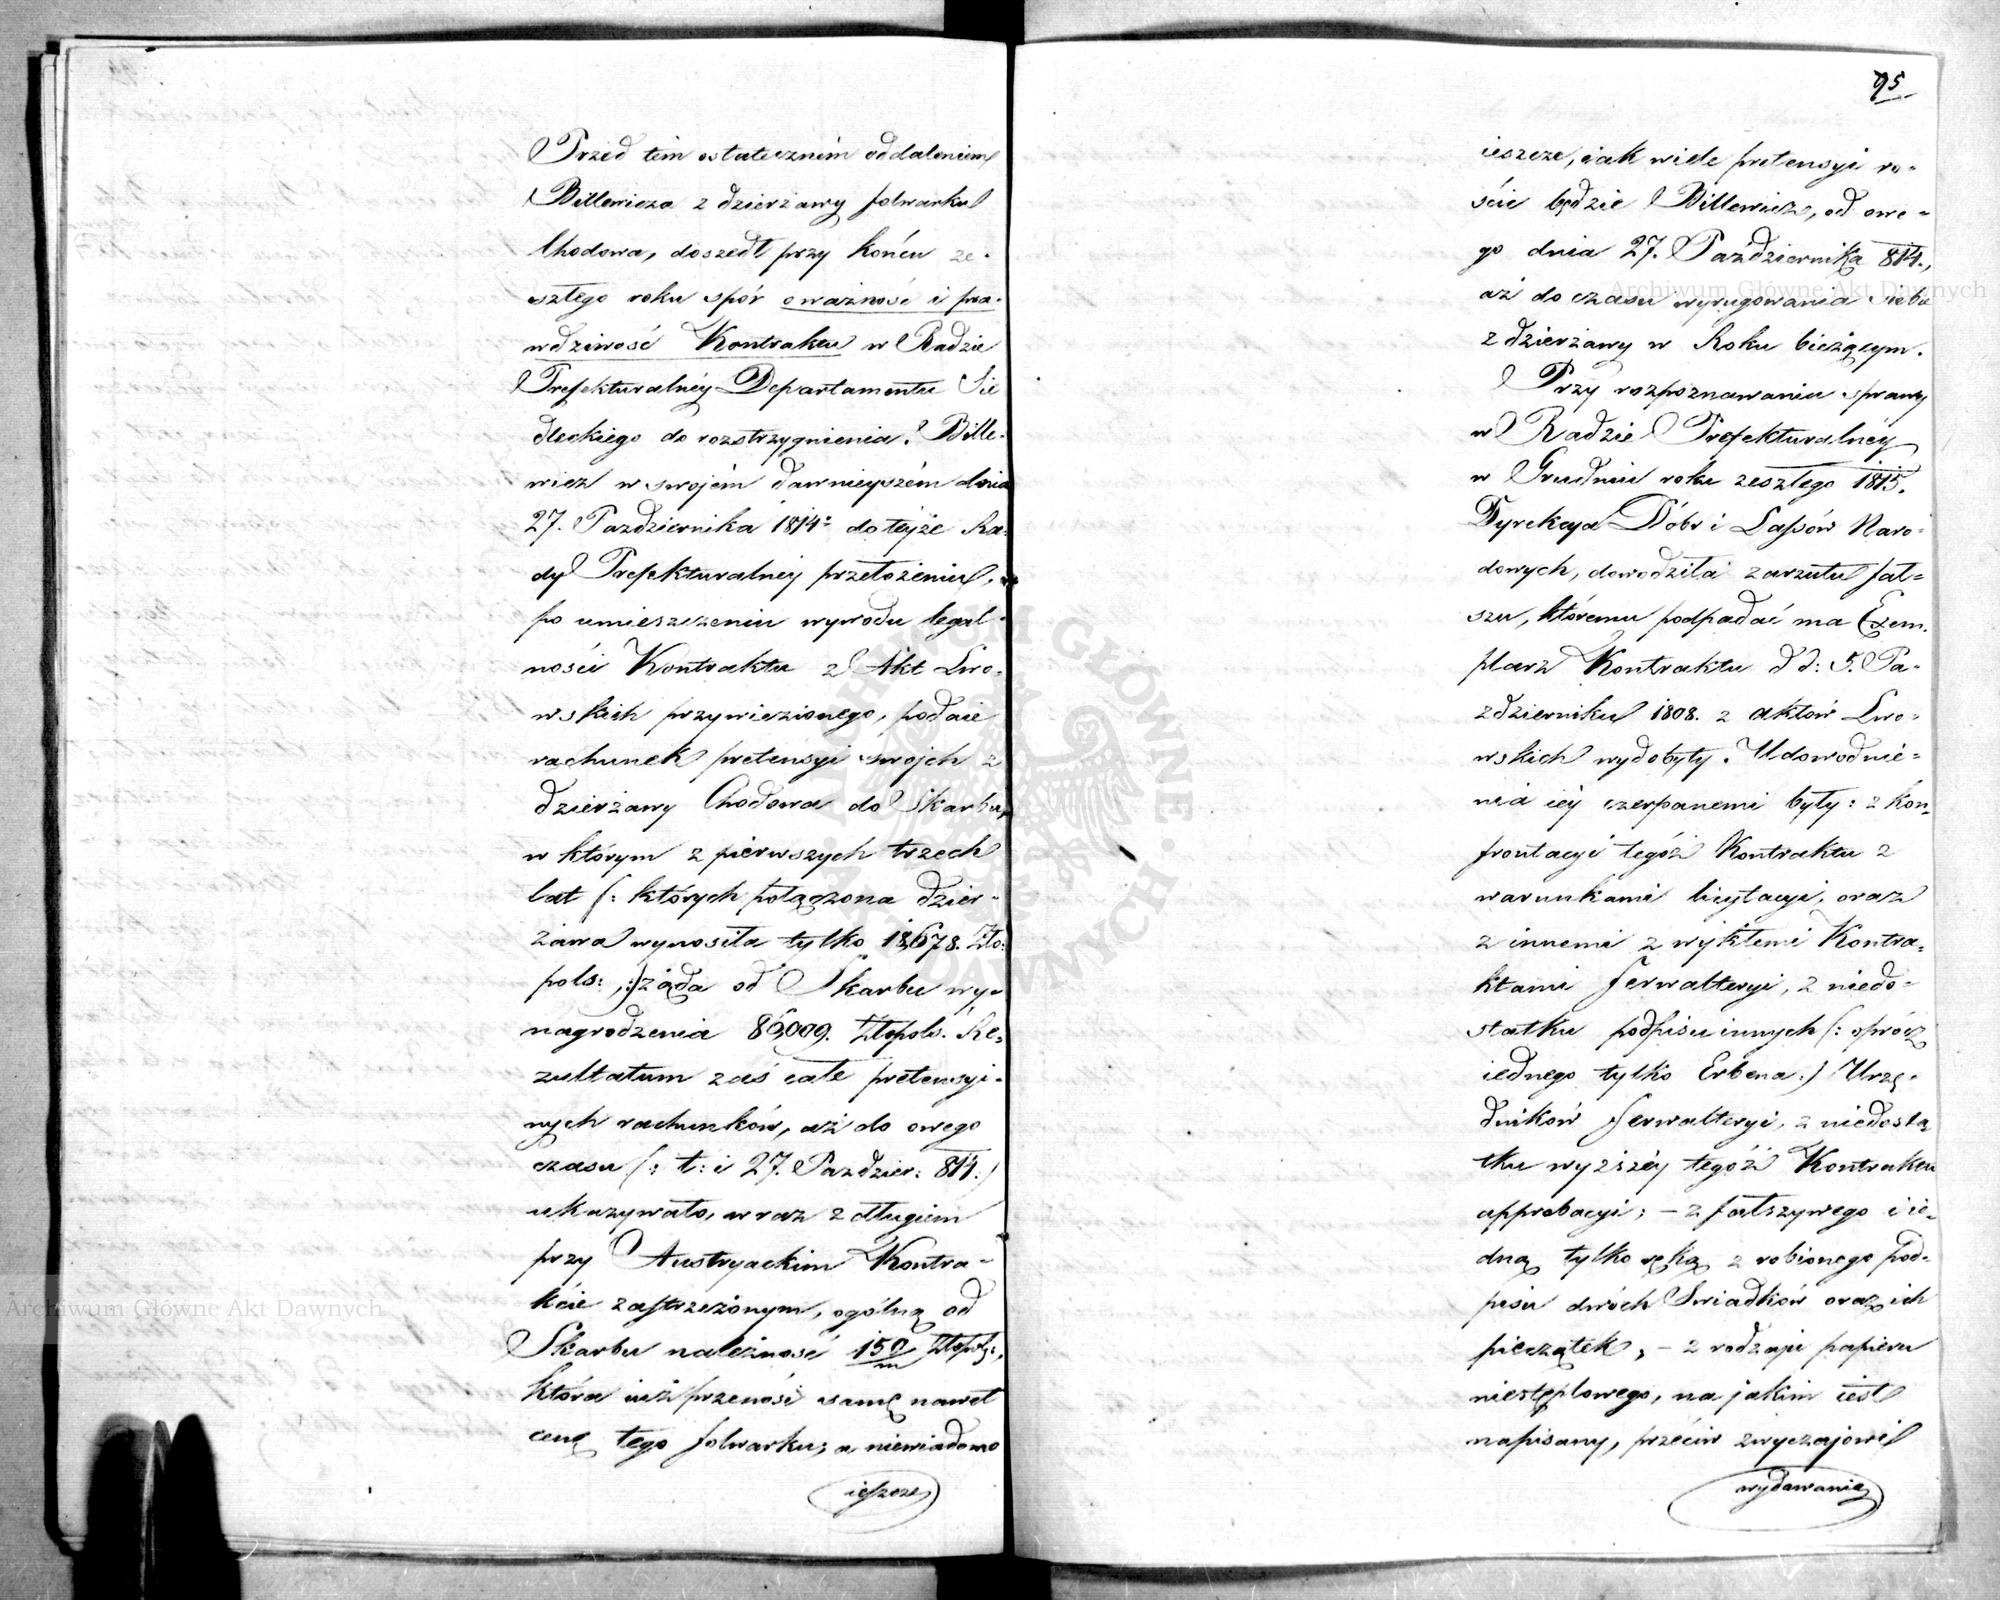 Przed tém ostateczném oddaleniem
Billewicza z dzierżawy folwarku
Chodowa, doszedł przy końcu ze-
szłego roku spór o ważność i pra-
wdziwość Kontraktu w Radzie
Prefekturalnéy Departamentu Sie
dleckiego do rozstrzygnienia. Bille-
wicz w swojém dawnieyszém dnia
27. Października 1814: do téyże Ra-
dy Prefekturalnéy przełożeniu,
po umieszczeniu wywodu legal-
ności Kontraktu z Akt Lwo-
wskich przywiezionego, podaie
rachunek pretensyi swojch z
dzierżawy Chodowa do Skarbu,
w którym z pierwszych trzech
lat (: których połączona dzier-
żawa wynosiła tylko 18,678. Zło:
pols: :) żąda od Skarbu wy-
nagrodzenia 86,009. Złtopols. Re-
zultatum zaś całe pretensyi-
nych rachunków, aż do owego
czasu (: t: i 27. Paździer: 814. )
ukazywało, wraz z długiem
przy Austryackim Kontra-
kcie zastrzeżonym, ogólną od
Skarbu należność 150/m Złtopls:,
która już przenosi samę nawet
cenę tego folwarku; a niewiadomo
ieszcze
95
ieszcze, iak wiele pretensyi ro-
ście będzie Billewicz, od owe-
go dnia 27. Października 814.,
aż do czasu wyrugowania siebie
z dzierżawy w Roku bieżącym.
Przy rozpoznawaniu sprawy
w Radzie Prefekturalnéy
w Grudniu roku zeszłego 1815.
Dyrekcya Dóbr i Lassów Naro-
dowych, dowodziła zarzutu fał-
szu, któremu podpadać ma Exem-
plarz Kontraktu d d: 5. Pa-
ździerniku 1808. z aktów Lwo-
wskich wydobyty. Udowodnie-
nia iéy czerpanemi były: z kon-
frontacyi tegóż Kontraktu z
warunkami licytacyi, oraz
z innemi zwykłemi Kontra-
ktami Ferwalteryi, z niedo-
statku podpisu innych (: oprócz
iednego tylko Erbena :) Urzę-
dników Ferwalteryi, z niedosta
tku wyższéy tegóż Kontraktu
approbacyi; – z fałszywego i ie-
dną tylko ręką zrobionego pod-
pisu dwóch Swiadków oraz ich
pieczątek; – z rodzaju papieru
niestęplowego, na jakim iest
napisany, przeciw zwyczajowi
wydawania
Archiwum Główne Akt Dawnych
Archiwum Główne Akt Dawnych
ARCHIWUM GŁÓWNE AKT DAWNYCH